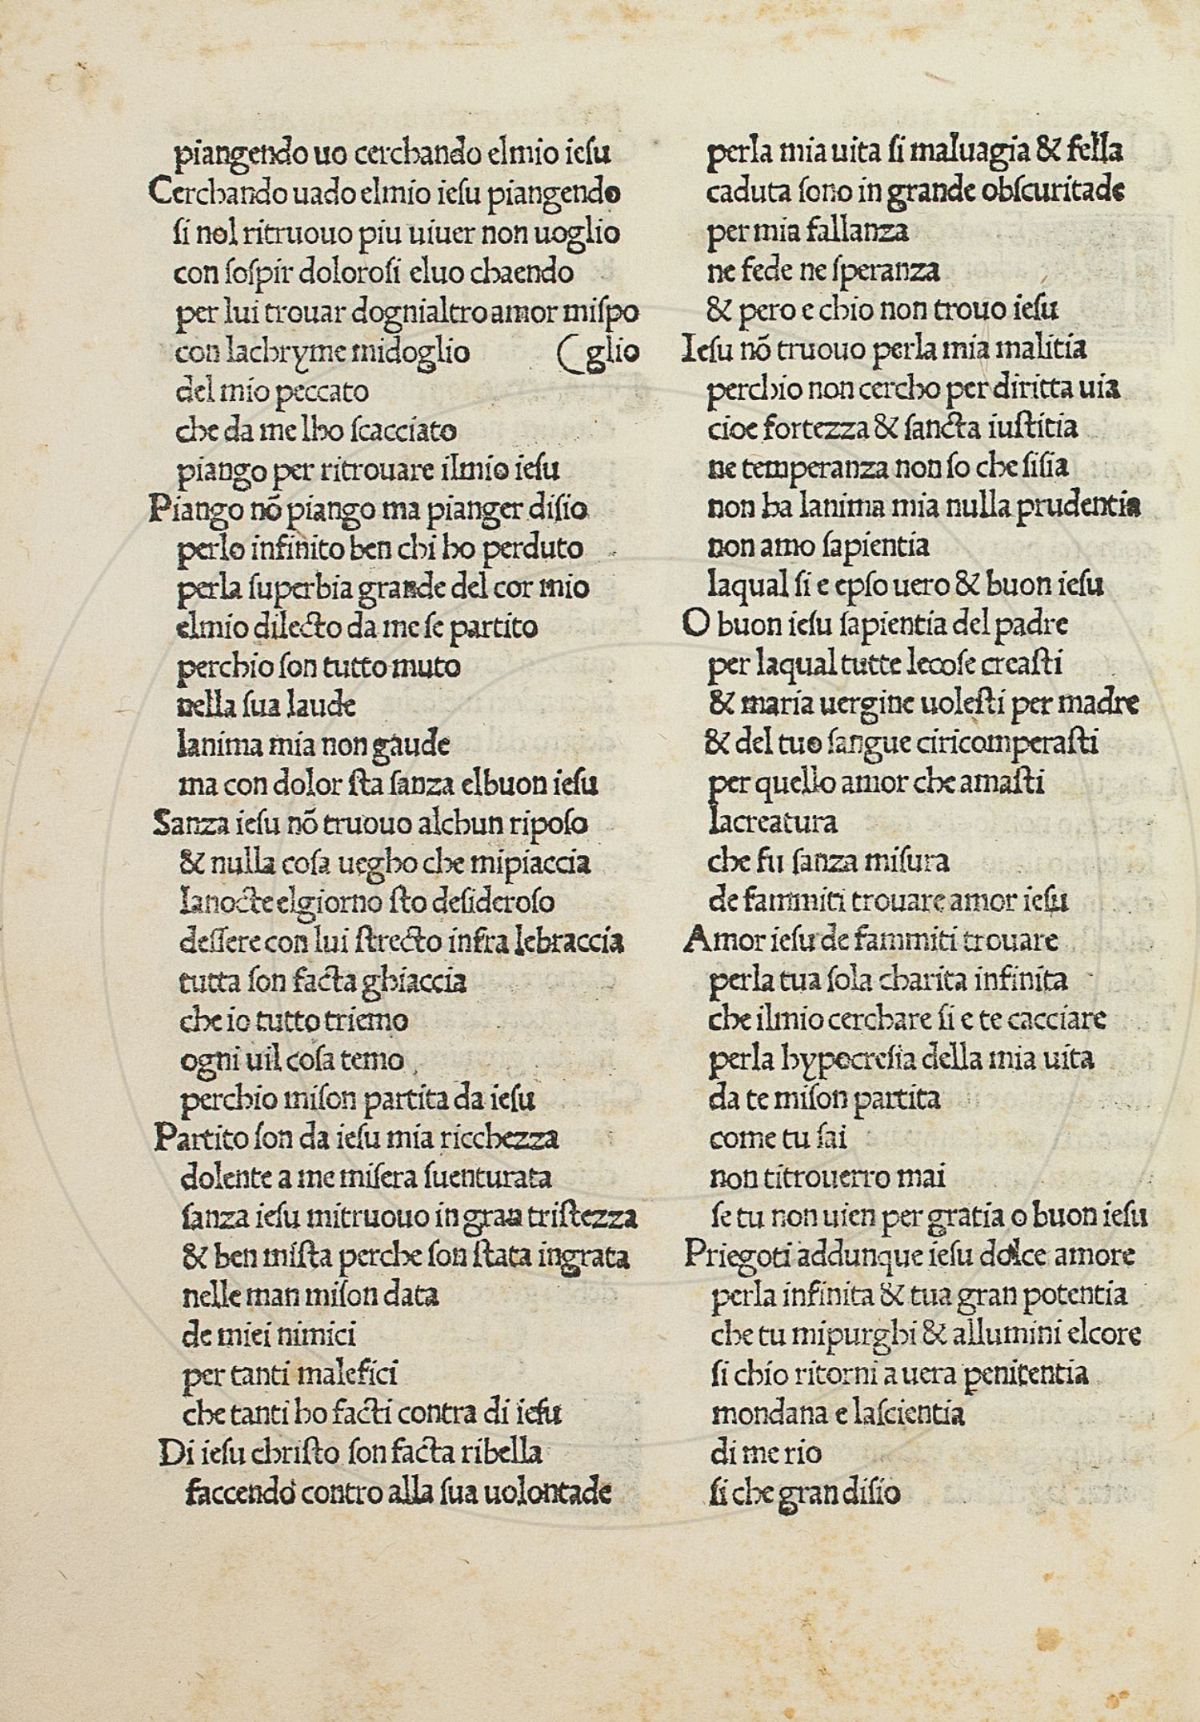 piangendo uo cerchando elmio iesu
Cerchando uado elmio iesu piangendo
si nol ritruouo piu uiuer non uoglio
con sospir dolorosi eluo chaendo
per lui trouar dognialtro amor mispo
con lachryme midoglio (glio
del mio peccato
che da me lho scacciato
piango per ritrouare ilmio iesu
Piango nõ piango ma pianger disio
perlo infinito ben chi ho perduto
perla superbia grande del cor mio
elmio dilecto da me se partito
perchio son tutto muto
nella sua laude
lanima mia non gaude
ma con dolor sta sanza elbuon iesu
Sanza iesu nõ truouo alchun riposo
& nulla cosa uegho che mipiaccia
lanocte elgiorno sto desideroso
dessere con lui strecto infra lebraccia
tutta son facta ghiaccia
che io tutto triemo
ogni uil cosa temo
perchio mison partita da iesu
Partito son da iesu mia ricchezza
dolente a me misera suenturata
sanza iesu mitruouo in gran tristezza
& ben mista perche son stata ingrata
nelle man mison data
de miei nimici
per tanti malefici
che tanti ho facti contra di iesu
Di iesu christo son facta ribella
faccendo contro alla sua uolontade
perla mia uita si maluagia & fella
caduta sono in grande obscuritade
per mia fallanza
ne fede ne speranza
& pero e chio non trouo iesu
Iesu nõ truouo perla mia malitia
perchio non cercho per diritta uia
cioe fortezza & sancta iustitia
ne temperanza non so che sisia
non ha lanima mia nulla prudentia
non amo sapientia
laqual si e epso uero & buon iesu
O buon iesu sapientia del padre
per laqual tutte lecose creasti
& maria uergine uolesti per madre
& del tuo sangue ciricomperasti
per quello amor che amasti
lacreatura
che fu sanza misura
de fammiti trouare amor iesu
Amor iesu de fammiti trouare
perla tua sola charita infinita
che ilmio cerchare si e te cacciare
perla hypocresia della mia uita
da te mison partita
come tu sai
non titrouerro mai
se tu non uien per gratia o buon iesu
Priegoti addunque iesu dolce amore
perla infinita & tua gran potentia
che tu mipurghi & allumini elcore
si chio ritorni a uera penitentia
mondana e lascientia
di me rio
si che gran disio